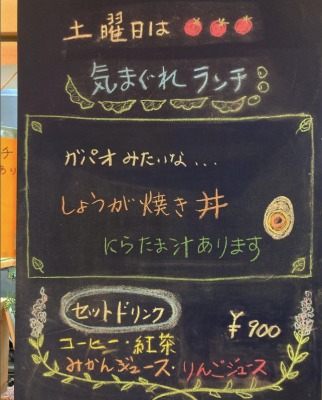 土曜日は
気まぐれランチ
ガパオみたいな...
しょうが焼き丼
にらたま汁あります
セットドリンク
¥900
コーヒー・紅茶
みかんジュース・りんごジュース
チ
あり